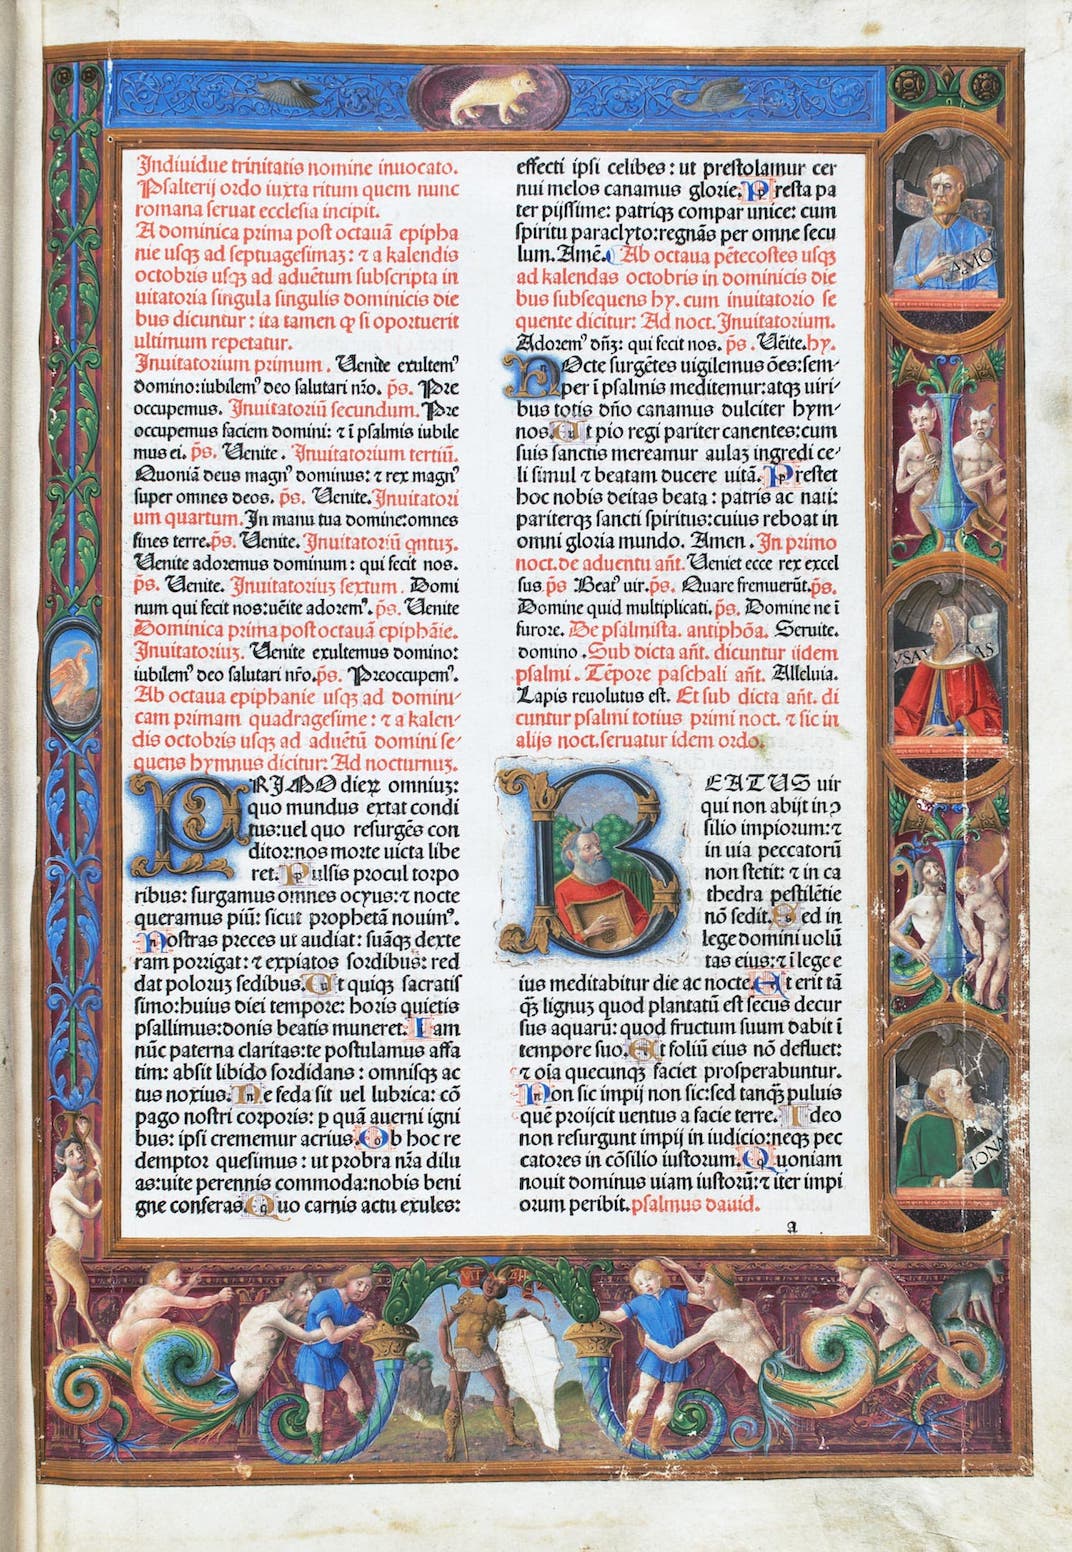 Individue trinitatis nomine inuocato.
Psalterij ordo iuxta ritum quem nunc
romana seruat ecclesia incipit.
A dominica prima post octauã epipha
nie usqꝫ ad septuagesimaꝫ: ⁊ a kalendis
octobris usqꝫ ad aduẽtum subscripta in
uitatoria singula singulis dominicis die
bus dicuntur: ita tamen ꝙ si oportuerit
ultimum repetatur.
Inuitatorium primum. Uenite exultemꝰ
domino: iubilemꝰ deo salutari nr̃o. p̃s. Pre
occupemus. Inuitatoriũ secundum. Pre
occupemus faciem domini: ⁊ ĩ psalmis iubile
mus ei. p̃s. Uenite. Inuitatorium tertiũ.
Quoniã deus magnꝰ dominus: ⁊ rex magnꝰ
super omnes deos. p̃s. Uenite. Inuitatori
um quartum. In manu tua domine: omnes
fines terre. p̃s. Uenite. Inuitatoriũ qntuꝫ.
Uenite adoremus dominum: qui fecit nos.
p̃s. Uenite. Inuitatoriuꝫ sextum. Domi
num qui fecit nos: uẽite adoremꝰ. p̃s. Uenite
Dominica prima post octauã epiphãie.
Inuitatoriuꝫ. Uenite exultemus domino:
iubilemꝰ deo salutari nr̃o. p̃s. Preoccupemꝰ.
Ab octaua epiphanie usqꝫ ad domini-
cam primam quadragesime: ⁊ a kalen-
dis octobris usqꝫ ad aduẽtũ domini se-
quens hymnus dicitur: Ad nocturnuꝫ.
PRIMO dieꝝ omniuꝫ:
quo mundus extat condi
tus: uel quo resurgẽs con
ditor: nos morte uicta libe
ret. Pulsis procul torpo
ribus: surgamus omnes ocyus: ⁊ nocte
queramus piũ: sicut prophetã nouimꝰ.
Nostras preces ut audiat: suãqꝫ dexte
ram porrigat: ⁊ expiatos sordibus: red
dat poloruꝫ sedibus. Ut quiqꝫ sacratis
simo: huius diei tempore: horis quietis
psallimus: donis beatis muneret. Iam
nũc paterna claritas: te postulamus affa
tim: absit libido sordidans: omnisqꝫ ac
tus noxius. Ne feda sit uel lubrica: cõ
pago nostri corporis: ꝑ quã auerni igni
bus: ipsi crememur acrius. Ob hoc re
demptor quesimus: ut probra nr̃a dilu
as: uite perennis commoda: nobis beni
gne conferas. Quo carnis actu exules:
effecti ipsi celibes: ut prestolamur cer
nui melos canamus glorie. Presta pa
ter pijssime: patriqꝫ compar unice: cum
spiritu paraclyto: regnãs per omne secu
lum. Amẽ. Ab octaua pẽtecostes usqꝫ
ad kalendas octobris in dominicis die
bus subsequens hy. cum inuitatorio se
quente dicitur: Ad noct. Inuitatorium.
Adoremꝰ dñꝫ: qui fecit nos. p̃s. Uẽite. hy.
NOcte surgẽtes uigilemus oẽs: sem-
per ĩ psalmis meditemur: atqꝫ uiri-
bus totis dño canamus dulciter hym-
nos. Ut pio regi pariter canentes: cum
suis sanctis mereamur aulaꝫ ingredi ce-
li simul ⁊ beatam ducere uitã. Prestet
hoc nobis deitas beata: patris ac nati:
pariterqꝫ sancti spiritus: cuius reboat in
omni gloria mundo. Amen. In primo
noct. de aduentu añt. Ueniet ecce rex excel
sus p̃s Beatꝰ uir. p̃s. Quare fremuerũt. p̃s.
Domine quid multiplicati. p̃s. Domine ne ĩ
furore. De psalmista. antiphõa. Seruite.
domino. Sub dicta añt. dicuntur iidem
psalmi. Tẽpore paschali añt. Alleluia.
Lapis reuolutus est. Et sub dicta añt. di
cuntur psalmi totius primi noct. ⁊ sic in
alijs noct. seruatur idem ordo.
BEATUS uir
qui non abijt in ꝯ
silio impiorum: ⁊
in uia peccatorũ
non stetit: ⁊ in ca
thedra pestilẽtie
nõ sedit. Sed in
lege domini uolũ
tas eius: ⁊ ĩ lege e
ius meditabitur die ac nocte. Et erit tã
q̃ꝫ lignuꝫ quod plantatũ est secus decur
sus aquarũ: quod fructum suum dabit ĩ
tempore suo. Et foliũ eius nõ defluet:
⁊ oĩa quecunqꝫ faciet prosperabuntur.
Non sic impij non sic: sed tanqꝫ puluis
quẽ proijcit uentus a facie terre. Ideo
non resurgunt impij in iudicio: neqꝫ pec
catores in cõsilio iustorum. Quoniam
nouit dominus uiam iustorũ: ⁊ iter impi
orum peribit. psalmus dauid.
a
AMO
YSAYAS
IONA